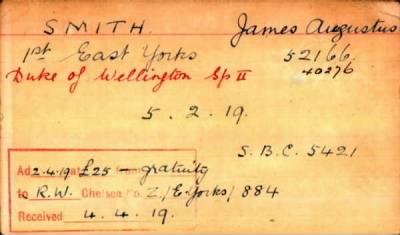 SMITH. James Augustus
1st East Yorks 52166
Duke of Wellington Sp II 40276
5.2.19.
S.B.C. 5421
Ad 2.4.19 at £25 — from gratuity
to R.W. Chelsea No. Z/E.Yorks/884
Received 4.4.19.